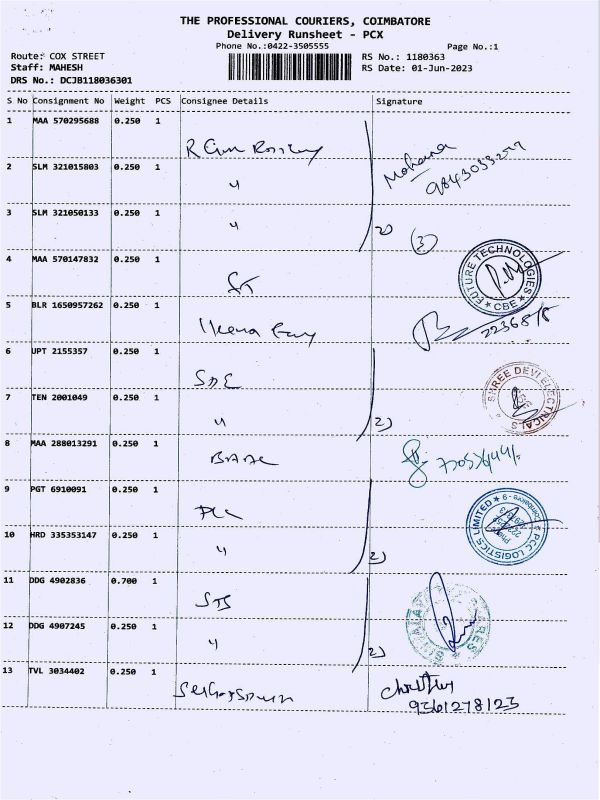 THE PROFESSIONAL COURIERS, COIMBATORE
Delivery Runsheet - PCX
Phone No.:0422-3505555
Page No.:1
Route: COX STREET
RS No.: 1180363
Staff: MAHESH
RS Date: 01-Jun-2023
DRS No.: DCJB118036301
S No Consignment No Weight PCS Consignee Details Signature
1 MAA 570295688 0.250 1
Mohana
2 SLM 321015803 0.250 1
3 SLM 321050133 0.250 1
2) (3)
4 MAA 570147832 0.250 1
FUTURE TECHNOLOGIES CBE
5 BLR 1650957262 0.250 1
6 UPT 2155357 0.250 1
SDE
SHREE DEVI ELECTRICALS
7 TEN 2001049 0.250 1
2)
8 MAA 288013291 0.250 1
9 PGT 6910091 0.250 1
PCC LOGISTICS LIMITED
10 HRD 335353147 0.250 1
2)
11 DDG 4902836 0.700 1
12 DDG 4907245 0.250 1
2)
13 TVL 3034402 0.250 1
9361278123